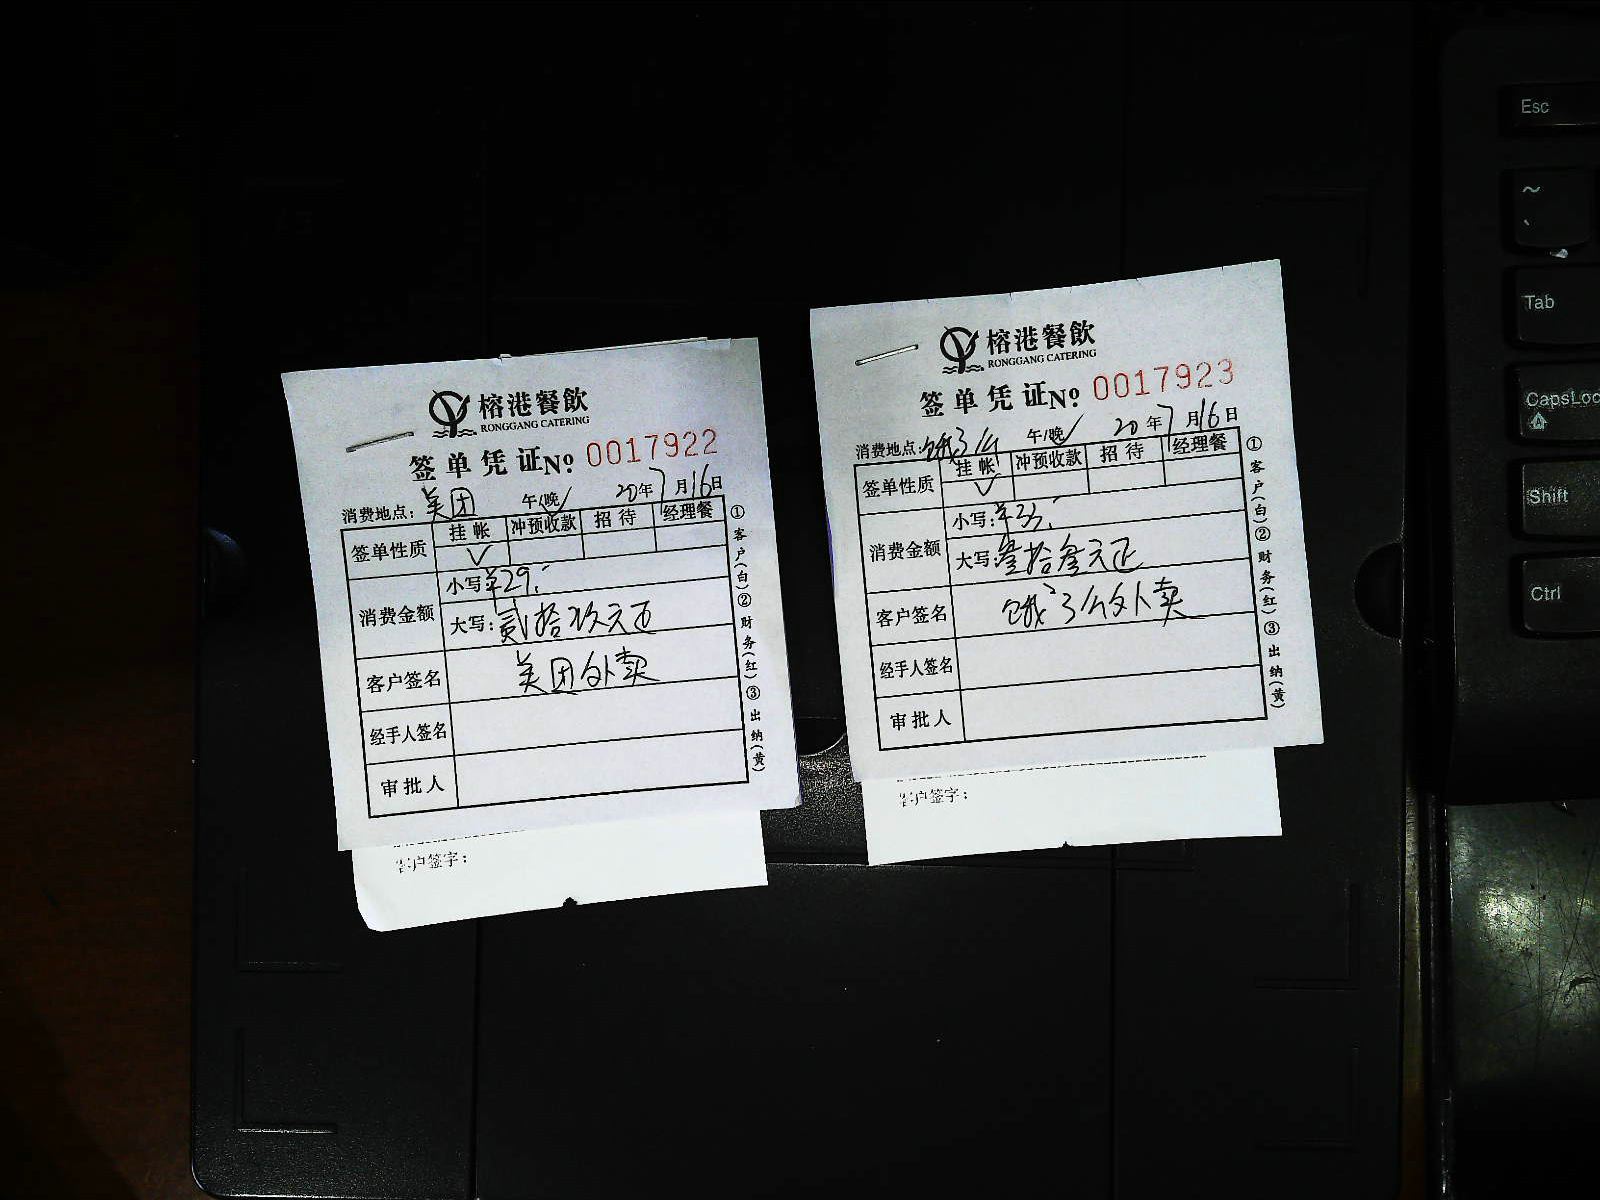 榕港餐飲
RONGGANG CATERING
签单凭证 No. 0017922
消费地点：美团 午/晚✓ 20年7月16日
签单性质 挂帐 冲预收款 招待 经理餐
✓
消费金额 小写：¥29.-
大写：贰拾玖元正
客户签名 美团外卖
经手人签名
审批人
①客户(白)②财务(红)③出纳(黄)
客户签字：
榕港餐飲
RONGGANG CATERING
签单凭证 No. 0017923
消费地点：饿了么 午/晚✓ 20年7月16日
签单性质 挂帐 冲预收款 招待 经理餐
✓
消费金额 小写：¥33.-
大写：叁拾叁元正
客户签名 饿了么外卖
经手人签名
审批人
①客户(白)②财务(红)③出纳(黄)
客户签字：
Esc
~
`
Tab
CapsLoc
Shift
Ctrl